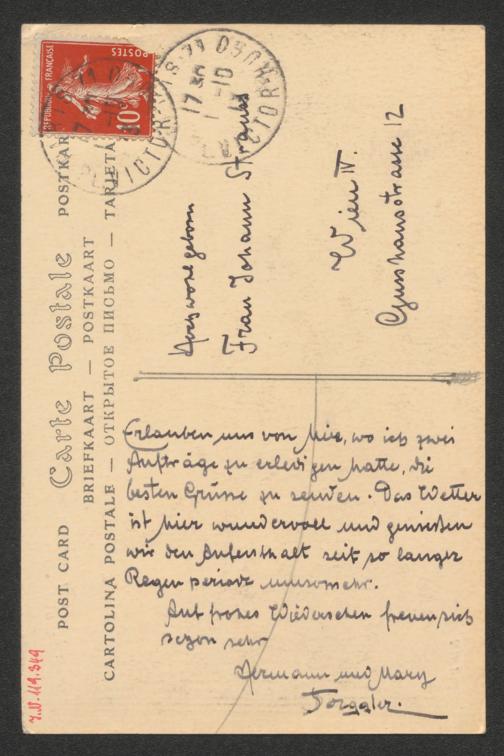 POST CARD Carte Postale POSTKAR
BRIEFKAART — POSTKAART
CARTOLINA POSTALE — ОТКРЫТОЕ ПИСЬМО — TARJETA
REPUBLIQUE FRANÇAISE
POSTES
10
17 30
1 -10
VICTOR HUGO
Hochwohlgeborn
Frau Johann Strauss
Wien IV.
Gusshausstrasse 12
Erlauben uns von hier, wo ich zwei
Aufträge zu erledigen hatte, die
besten Grüsse zu senden. Das Wetter
ist hier wundervoll und genießen
wir den Aufenthalt seit so langer
Regenperiode umsomehr.
Auf frohes Wiedersehen freuen sich
schon sehr
Hermann und Mary
Torggler.
I.N. 119.349